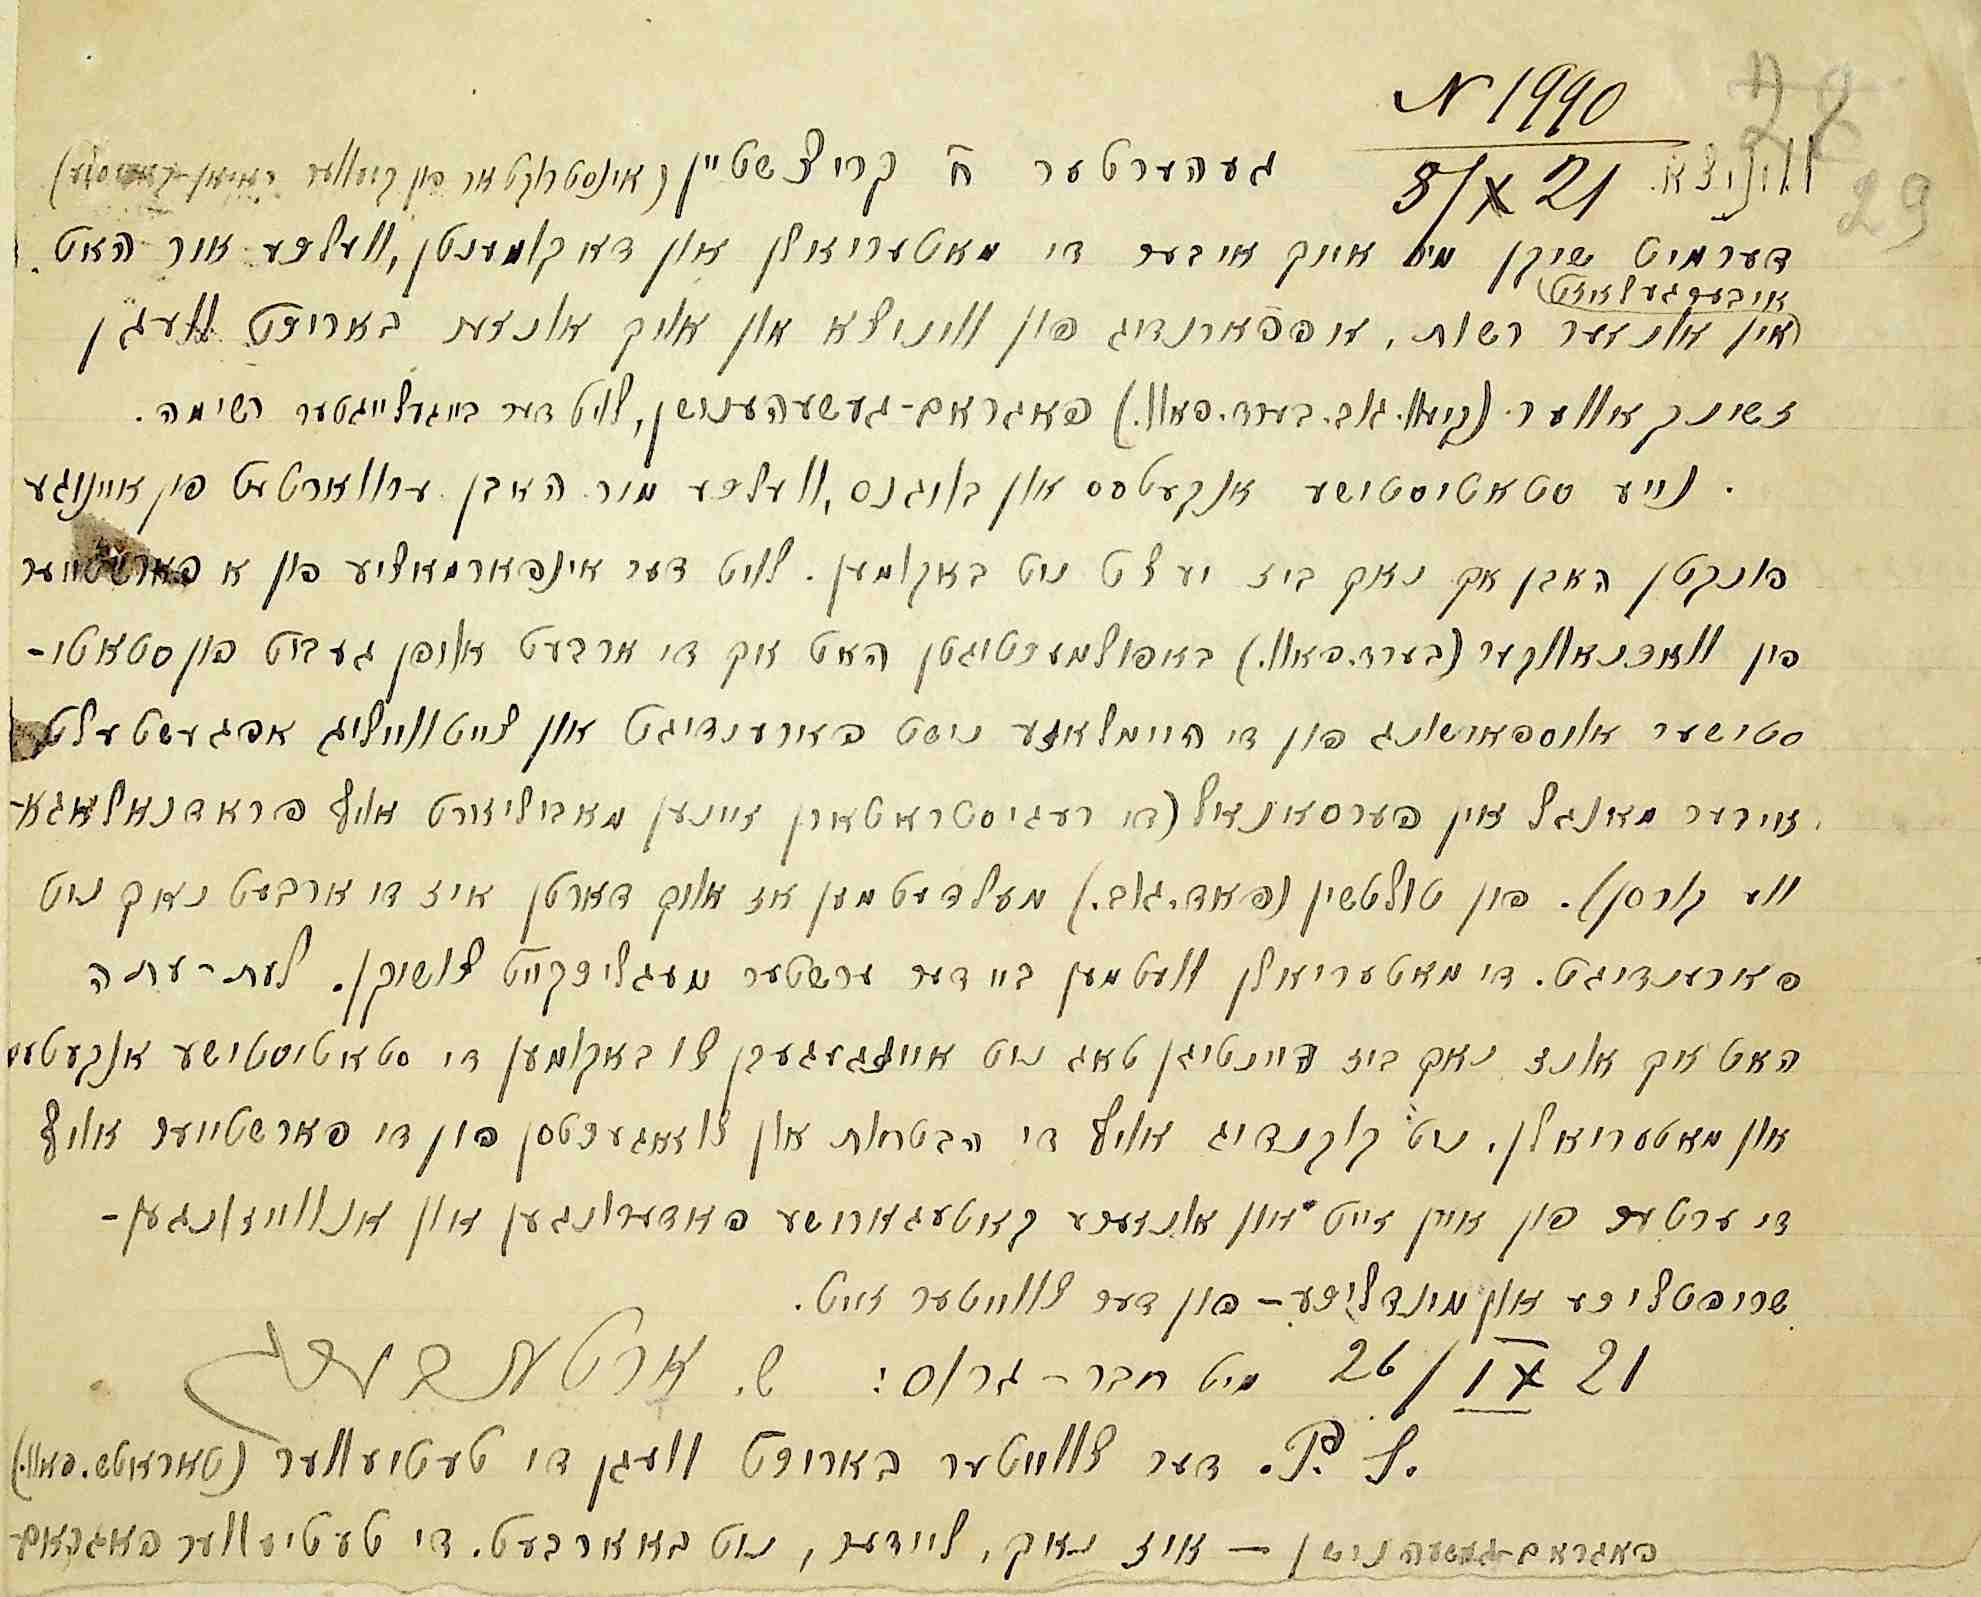 N 1990
5/X 21
29
וויניצא.
געהערטער ח' קרייצשטיין (אינסטרוקטאר פון קיעווער ראיאן-קאמיסיע)
דערמיט שיקן מיר אייך איבער די מאטעריאלן און דאקומענטן, וועלכע איר האט
איבערגעלאזט
אין אונזער רשות, אפפארנדיג פון וויניצא און אויך אונזער באריכט וועגן
זשינקאווער (קיעוו. גוב. בערד. פאוו.) פאגראם-געשעהענישן, לויט דער בייגעלייגטער רשימה.
נייע סטאטיסטישע אנקעטעס און בויגנס, וועלכע מיר האבן ערווארטעט פון אייניגע
פונקטן האבן מיר נאך ביז יעצט ניט באקומען. לויט דער אינפארמאציע פון א פארשטייער
פון וואכנאווקער (בערד. פאוו.) באפולמעכטיגטן האט זיך די ארבעט אויפן געביט פון סטאטי-
סטישער אויספארשונג פון די היימלאזע ניט פארענדיגט און צייטווייליג אפגעשטעלט
צוליב מאנגל אין פערסאנאל (די רעגיסטראטארן זיינען מאביליזירט אויף פראדנאלאגא-
ווע קורסן). פון טולטשין (פאד. גוב.) מעלדעט מען אז אויך דארטן איז די ארבעט נאך ניט
פארענדיגט. די מאטעריאלן וועט מען ביי דער ערשטער מעגליכקייט צושיקן. לעת-עתה
האט זיך אונז נאך ביז היינטיגן טאג ניט איינגעגעבן צו באקומען די סטאטיסטישע אנקעטעס
און מאטעריאלן, ניט קוקנדיג אויף די הבטחות און צוזאגעכטסן פון די פארשטייער אויף
די ערטער פון איין זייט און אונזערע קאטעגארישע פאדערונגען און אנווייזונגען-
שריפטליכע און מינדליכע - פון דער צווייטער זייט.
26/IX 21 מיט חבר-גרוס: ש.
P. S. דער צווייטער באריכט וועגן די טעטיעווער (טאראטש. פאוו.)
פאגראם-געשעהנישן - איז נאך, ליידער, ניט באארבעט. די טעטיעווער פאגראם-